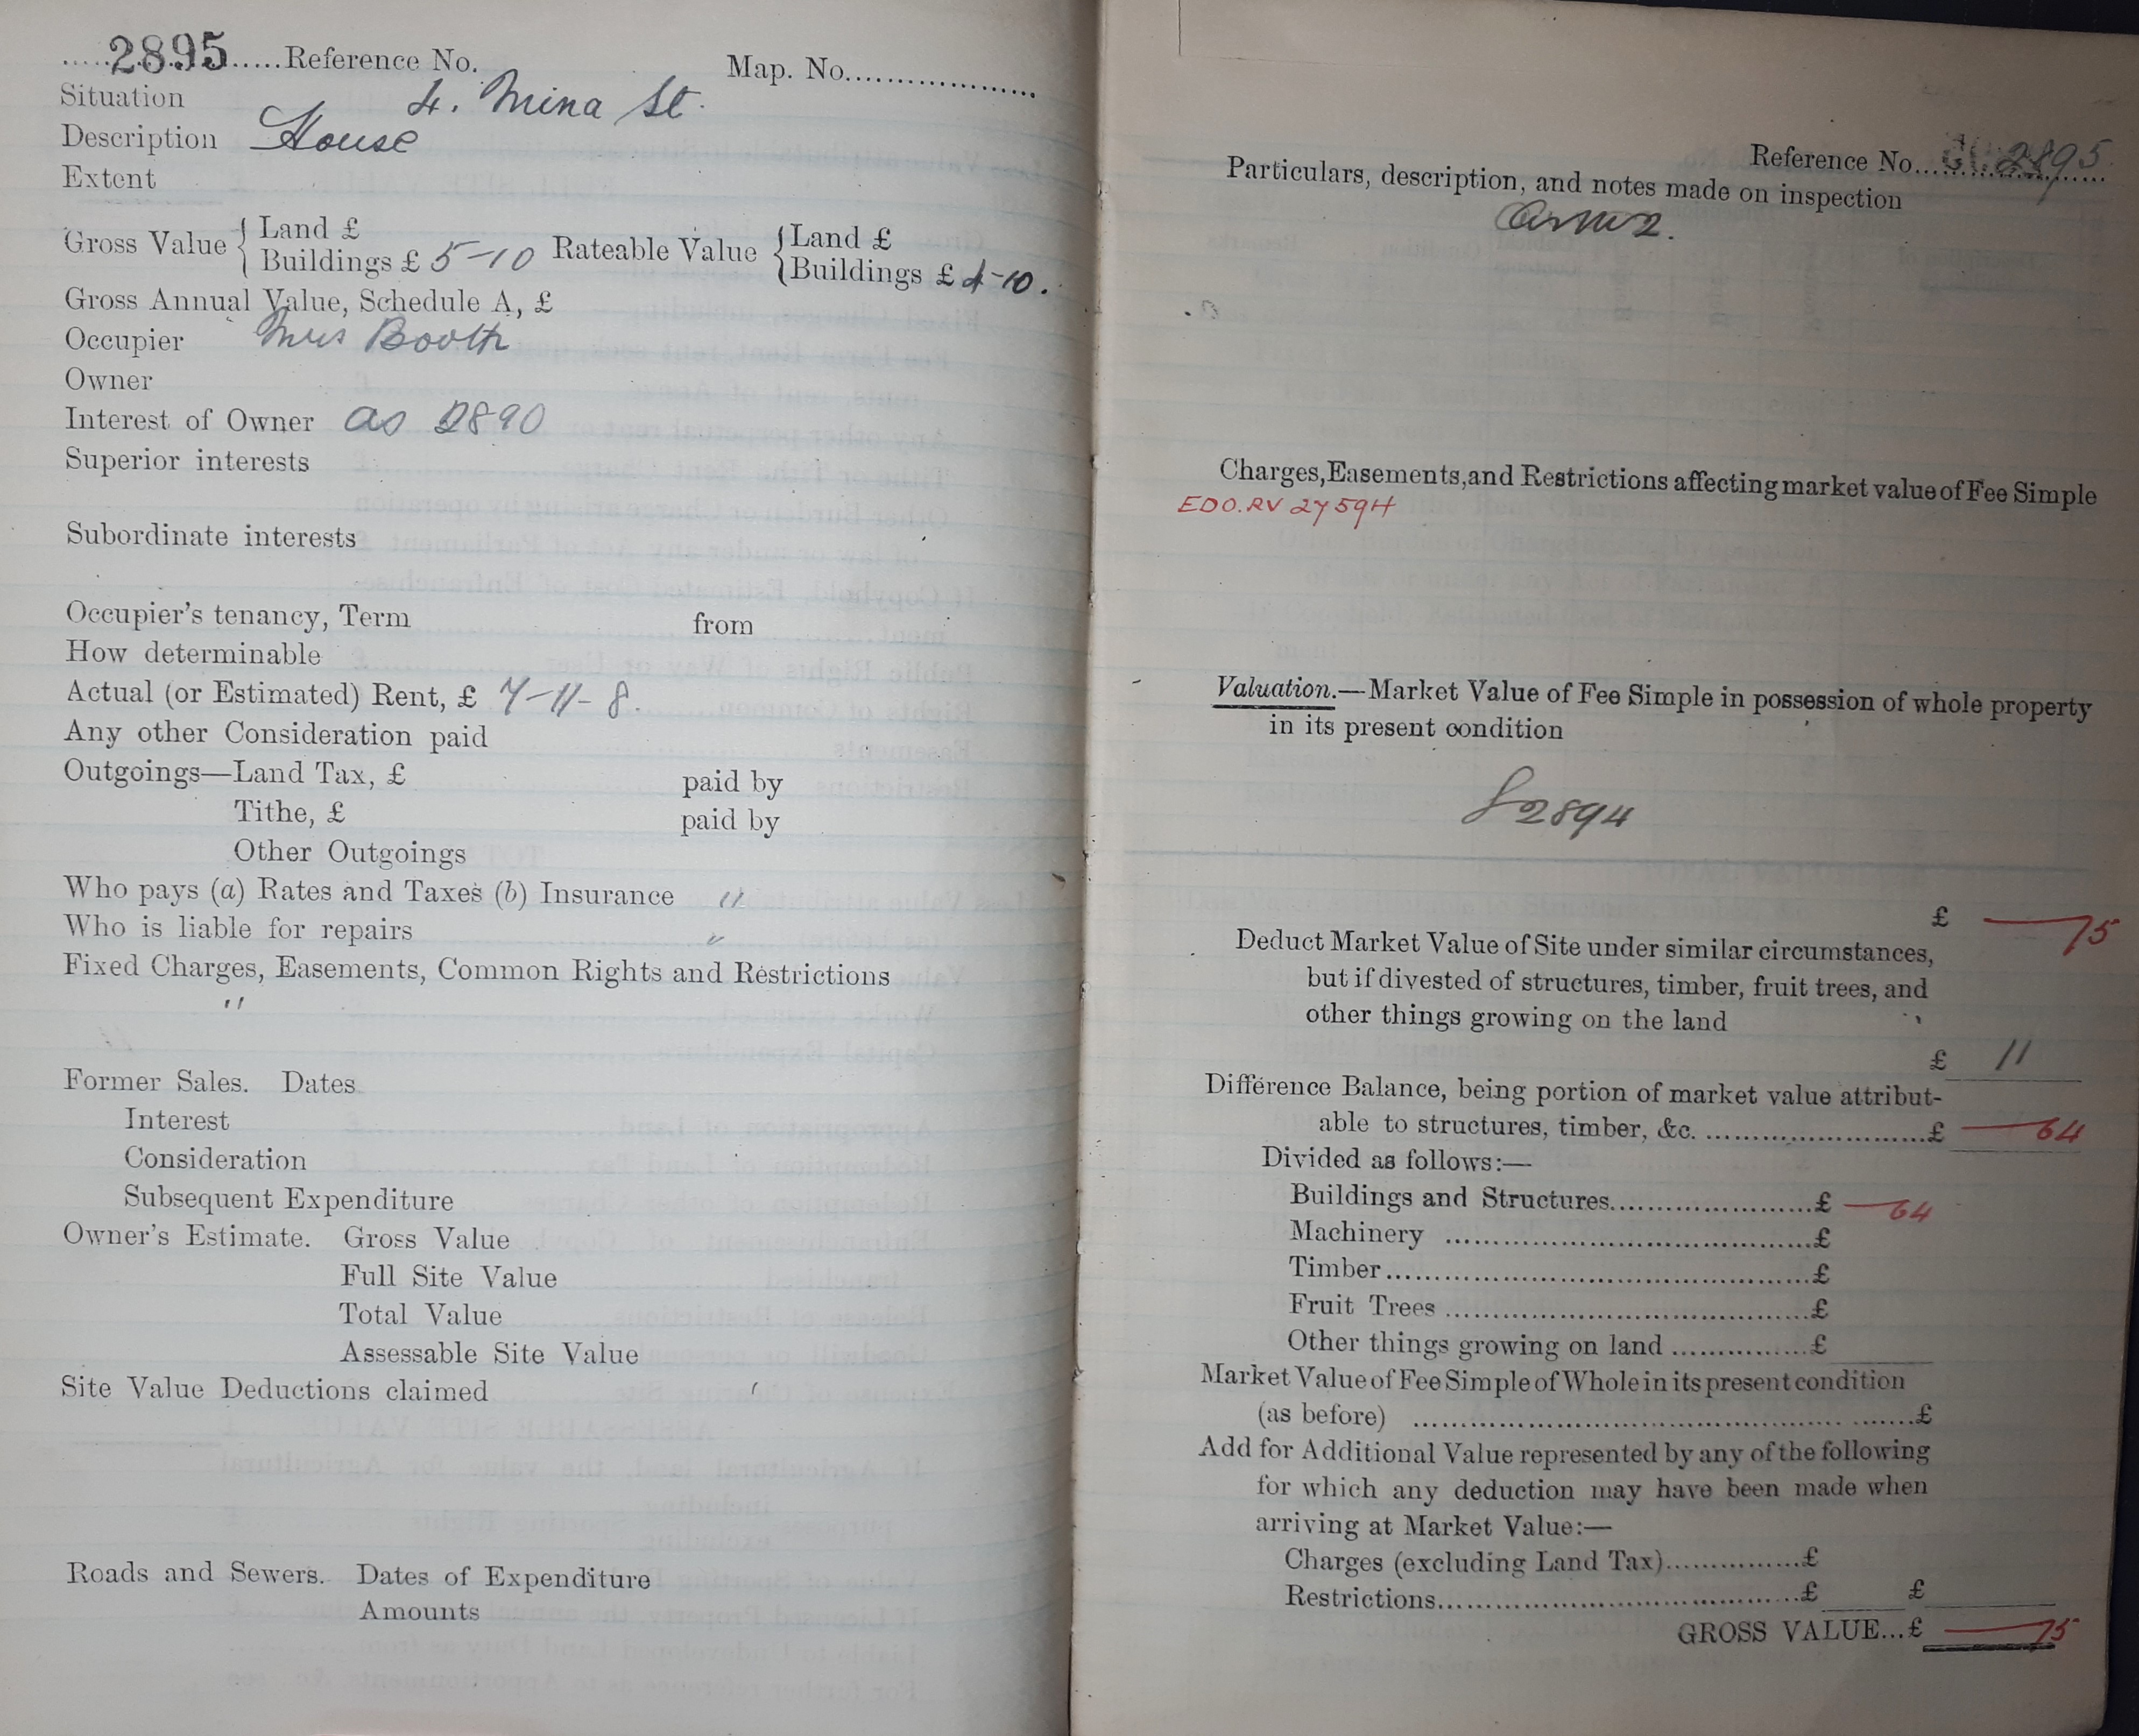 .....2895.....Reference No. Map. No....................
Situation 4. Mina St.
Description House
Extent
Gross Value { Land £
Buildings £ 5-10 Rateable Value { Land £
Buildings £ 4-10.
Gross Annual Value, Schedule A, £
Occupier Mrs Booth
Owner
Interest of Owner as 2890
Superior interests
Subordinate interests
Occupier's tenancy, Term from
How determinable
Actual (or Estimated) Rent, £ 7-11-8.
Any other Consideration paid
Outgoings—Land Tax, £ paid by
Tithe, £ paid by
Other Outgoings
Who pays (a) Rates and Taxes (b) Insurance "
Who is liable for repairs "
Fixed Charges, Easements, Common Rights and Restrictions
"
Former Sales. Dates
Interest
Consideration
Subsequent Expenditure
Owner's Estimate. Gross Value
Full Site Value
Total Value
Assessable Site Value
Site Value Deductions claimed
Roads and Sewers. Dates of Expenditure
Amounts
Reference No. 2895
Particulars, description, and notes made on inspection
Charges, Easements, and Restrictions affecting market value of Fee Simple
EDO.RV 27594
Valuation.—Market Value of Fee Simple in possession of whole property
in its present condition
2894
£ —75
Deduct Market Value of Site under similar circumstances,
but if divested of structures, timber, fruit trees, and
other things growing on the land
£ 11
Difference Balance, being portion of market value attribut-
able to structures, timber, &c. ..........................£ —64
Divided as follows:—
Buildings and Structures.......................£ —64
Machinery .......................................£
Timber.............................................£
Fruit Trees .......................................£
Other things growing on land ...............£
Market Value of Fee Simple of Whole in its present condition
(as before) ......................................................£
Add for Additional Value represented by any of the following
for which any deduction may have been made when
arriving at Market Value:—
Charges (excluding Land Tax)...............£
Restrictions.......................................£ £
GROSS VALUE...£ —75